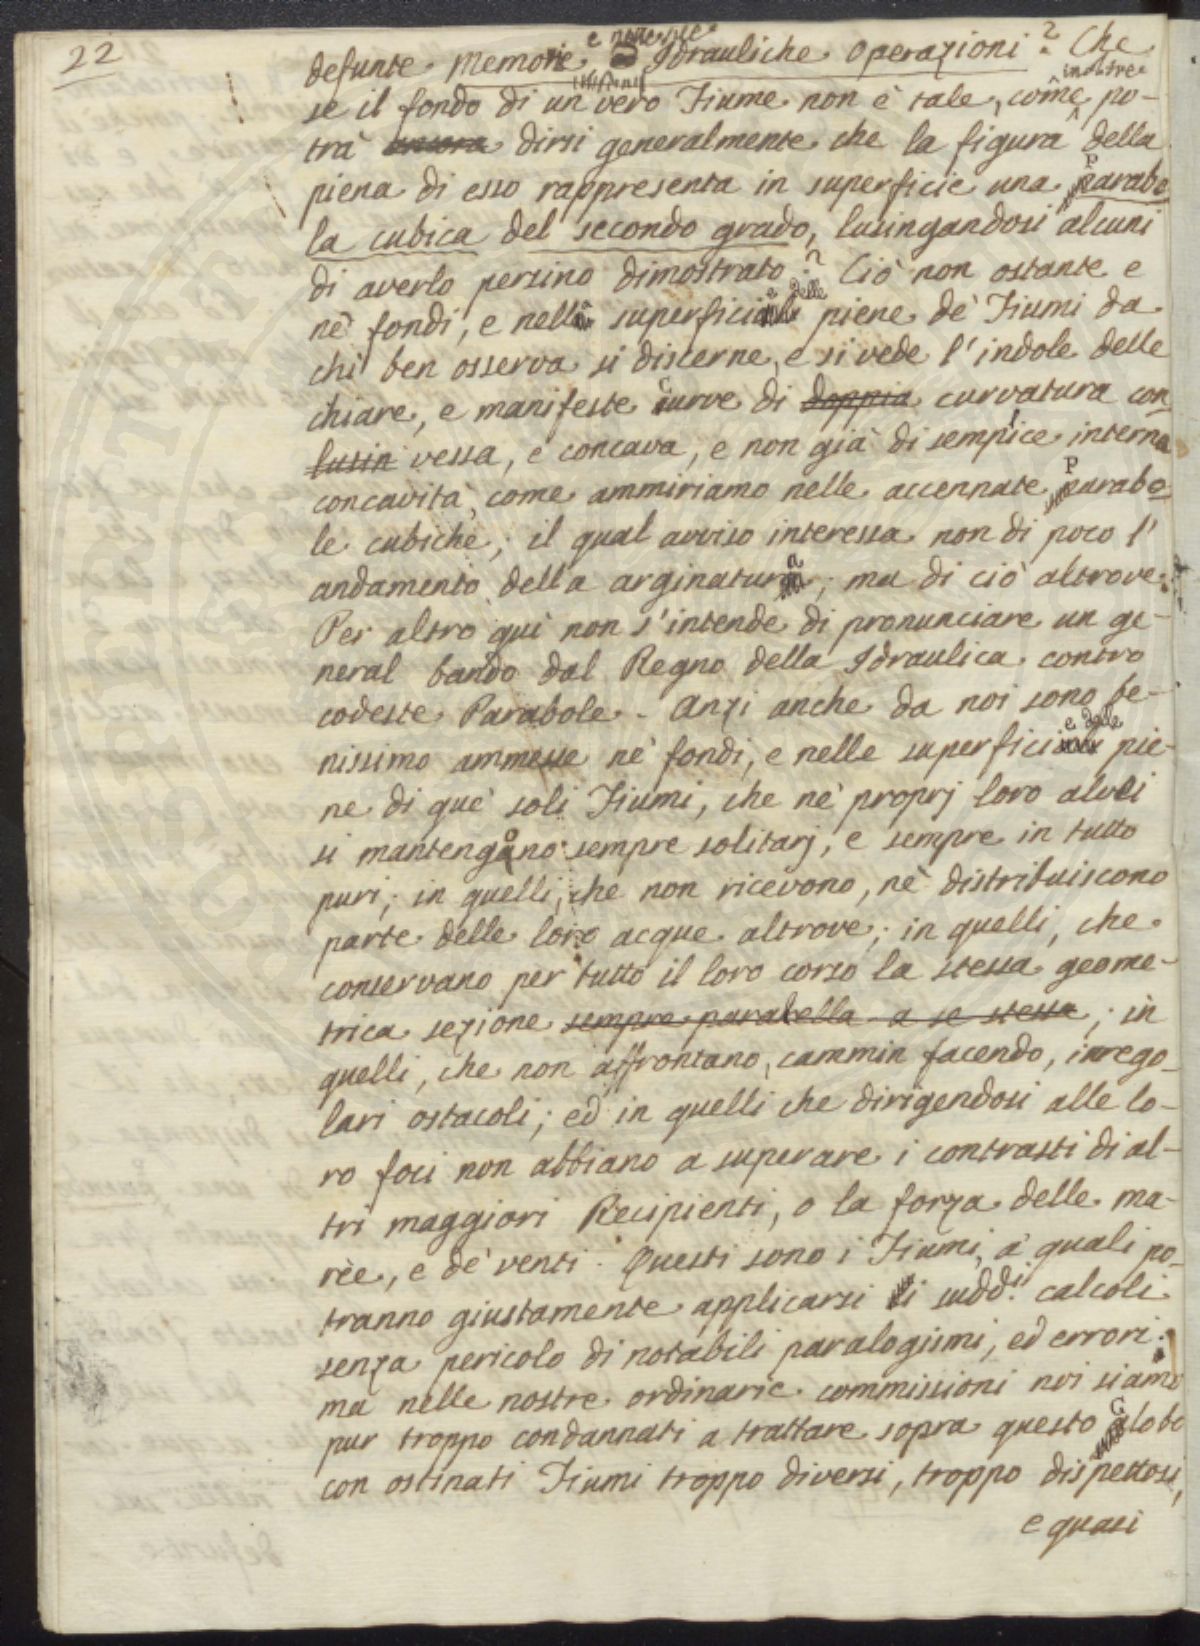 22
defunte Memorie, e nelle Idrauliche Operazioni? Che
se il fondo di un vero Fiume non è tale, come inoltre po-
trà ancora dirsi generalmente che la figura della
piena di esso rappresenta in superficie una Parabo
la cubica del secondo grado, lusingandosi alcuni
di averlo persino dimostrato? Ciò non ostante e
nè fondi, e nelle superficie delle piene de' Fiumi da
chi ben osserva si discerne, e si vede l'indole delle
chiare, e manifeste curve di doppia curvatura con
lusin vessa, e concava, e non già di semplice interna
concavità, come ammiriamo nelle accennate Parabo
le cubiche; il qual avviso interessa non di poco l'
andamento della arginatura; ma di ciò altrove.
Per altro quì non s'intende di pronunciare un ge-
neral bando dal Regno della Idraulica contro
codeste Parabole. Anzi anche da noi sono be-
nissimo ammesse nè fondi, e nelle superficie delle pie-
ne di què soli Fiumi, che nè proprj loro alvei
si mantengono sempre solitarj, e sempre in tutto
puri; in quelli, che non ricevono, nè distribuiscono
parte delle loro acque altrove; in quelli, che
conservano per tutto il loro corso la stessa geome-
trica sezione sempre paralella a se stessa; in
quelli, che non affrontano, cammin facendo, irrego-
lari ostacoli; ed in quelli che dirigendosi alle lo-
ro foci non abbiano a superare i contrasti di al-
tri maggiori Recipienti, o la forza delle ma-
rèe, e de' venti. Questi sono i Fiumi, à quali po-
tranno giustamente applicarsi i sudd.i calcoli
senza pericolo di notabili paralogismi, ed errori:
ma nelle nostre ordinarie commissioni noi siamo
pur troppo condannati a trattare sopra questo Globo
con ostinati Fiumi troppo diversi, troppo dispettosi,
e quasi